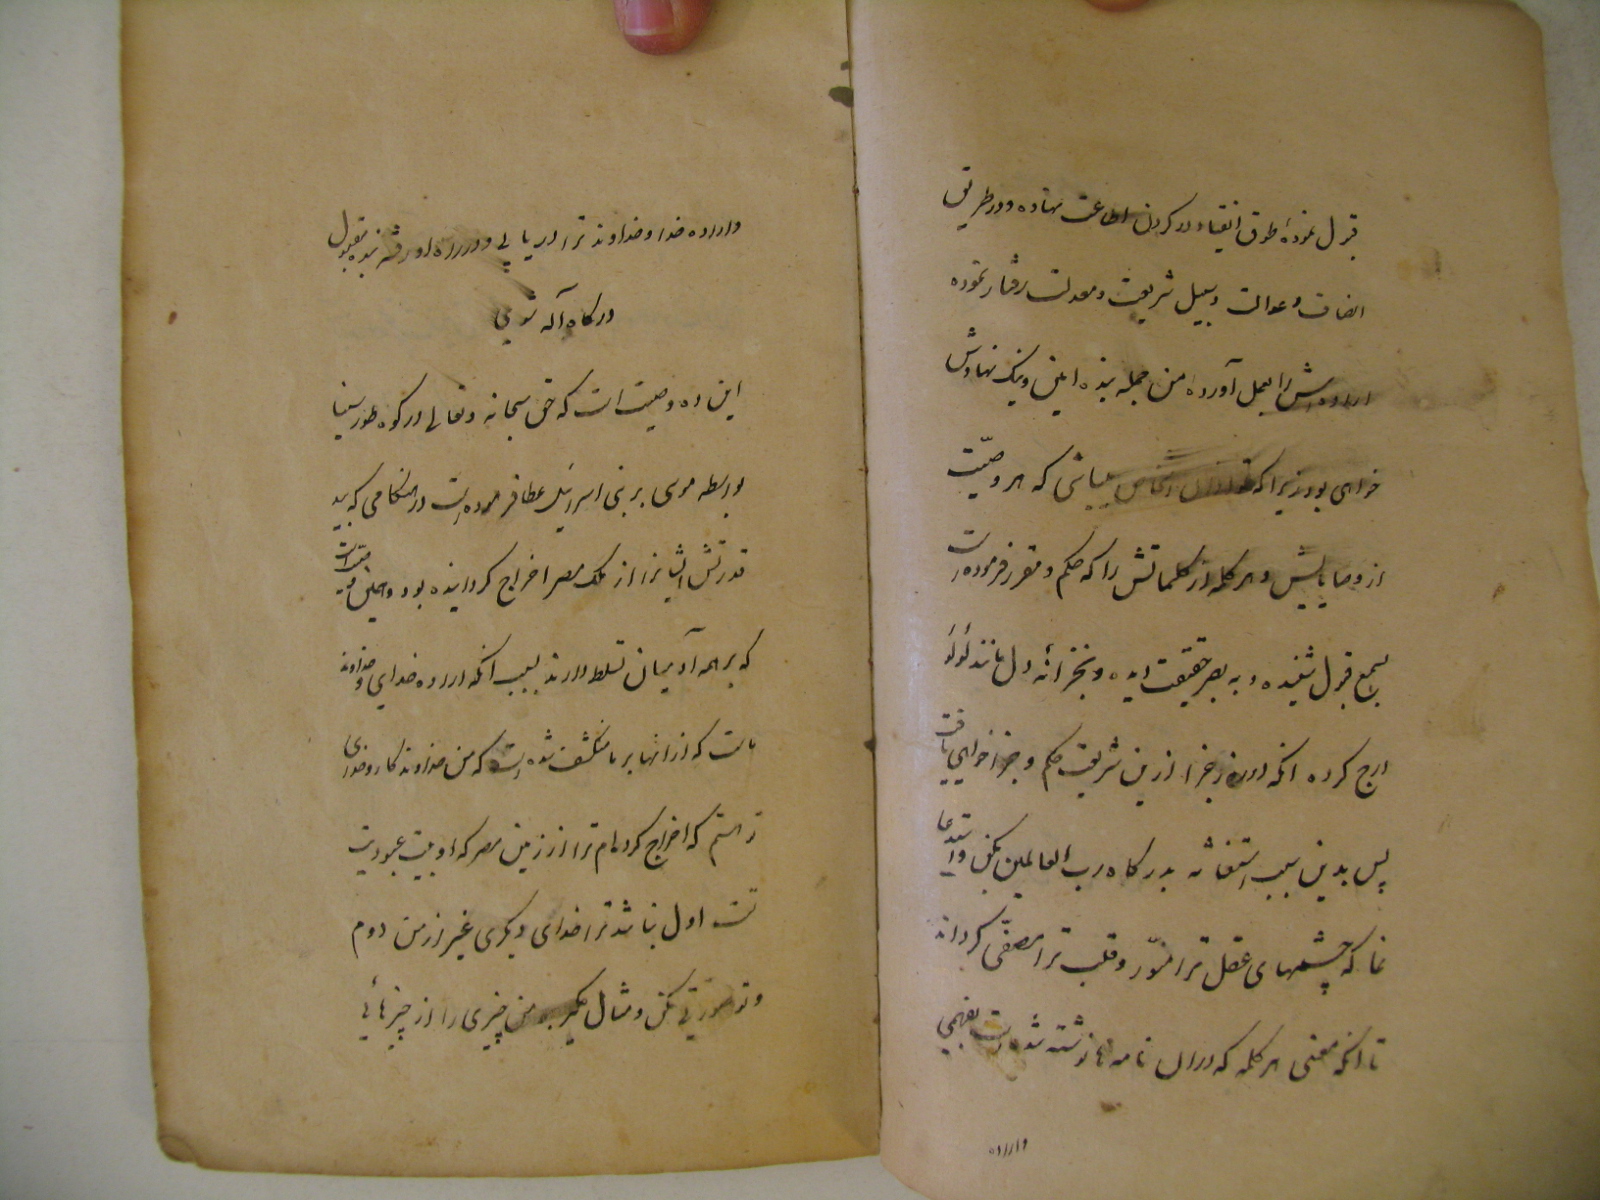 قبول نموده طوق انقیاد در کردن اطاعت نهاده و در طریق
انصاف و عدالت و سبیل شریعت و معدلت رفتار نموده
اراده اش را بعمل آورده من جمله بنده امین و نیک نهادش
خواهی بود زیرا که میباشی که هر وصیّت
از وصایایش و هر کلمه از کلماتش را که حکم و مقرر فرموده است
بسمع قبول شنیده و به بصر حقیقت دیده و بخزانهٔ دل مانند لؤلؤ
درج کرده انکه در روز جزا از این شریعت حکم و جزا خواهی یافت
پس بدین سبب استغاثه بدرکاه رب العالمین بکن و استدعا
نما که چشمهای عقل ترا منوّر و قلب ترا مصفّی کرداند
تا انکه معنی هر کلمه که در این نامه ها نوشته شده است بفهمی
و اراده
و اراده خدا و خداوند ترا دریابی و در راه او رفته بنده مقبول
درکاه آله شوی
این ده وصیت است که حق سبحانه و تعالی در کوه طور سینا
بواسطه موسی بر بنی اسرائیل عطا فرموده است در هنکامی که بید
قدرتش ایشانرا از ملک مصر اخراج کردانیده بود و همین
که بر همه آدمیان تسلط دارند بسبب انکه اراده خدای و خداوند
ماست که از انها بر ما منکشف شده است که من خداوند کار و خدای
تو هستم که اخراج کرده ام ترا از زمین مصر که او بیت عبودیت
تست اول نباشد ترا خدای دیکری غیر از من دوم
و تو صورتی مکن و مثال مکیر به من چیزی را از چیزهائی